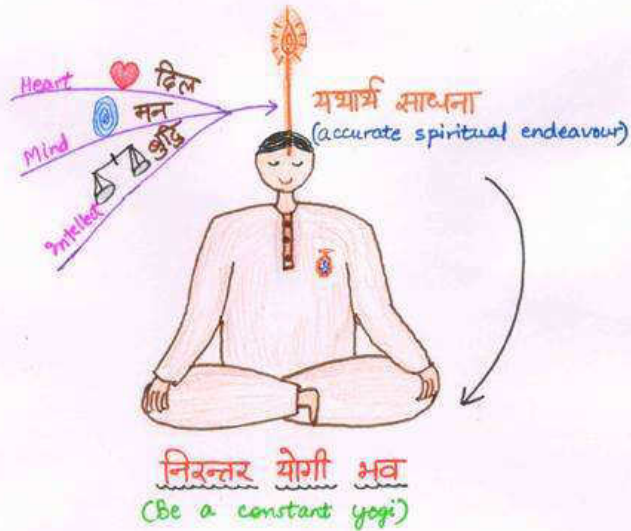 Heart दिल
मन
Mind बुद्धि
Intellect
यथार्थ साधना
(accurate spiritual endeavour)
निरन्तर योगी भव
(Be a constant yogi)